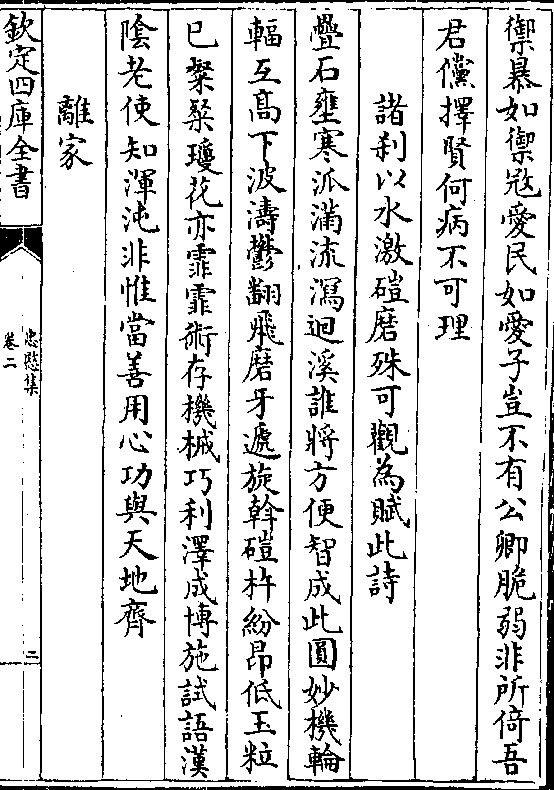 禦暴如禦㓂愛民如愛子豈不有公卿脆弱非所倚吾
君儻擇賢何病不可理
諸刹以水激磑磨殊可觀為賦此詩
疊石壅寒派滿流瀉迴溪誰將方便智成此圓妙機輪
輻互髙下波濤鬱翻飛磨牙遞旋斡磑杵紛昂低玉粒
已粲粲瓊花亦霏霏術存機械巧利澤成博施試語漢
陰老使知渾沌非惟當善用心功與天地齊
離家
欽定四庫全書
忠愍集
卷二
二